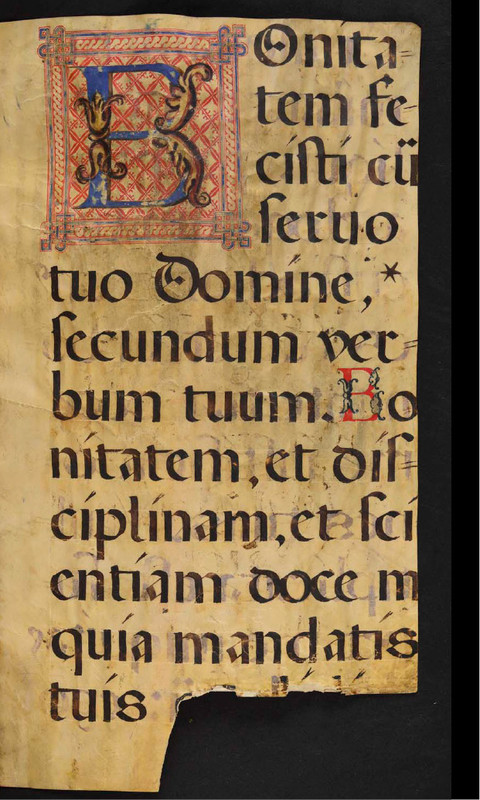 BOnita=
tem fe-
cisti cū
seruo
tuo Domine, *
secundum ver=
bum tuum. Bo
nitatem, et dis=
ciplinam, et sci
entiam doce m
quia mandatis
tuis